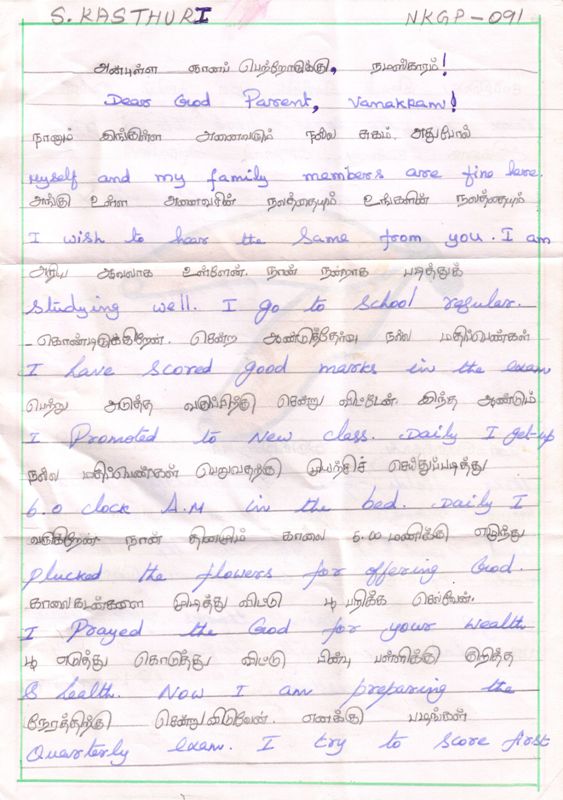 S. KASTHURI NKGP-091
அன்புள்ள ஞானப் பெற்றோருக்கு, நமஸ்காரம்!
Dear God Parent, Vanakkam!
நானும் இங்குள்ள அனைவரும் நல்ல சுகம். அதுபோல்
Myself and my family members are fine here.
அங்கு உள்ள அனைவரின் நலத்தையும் உங்களின் நலத்தையும்
I wish to hear the same from you. I am
அறிய ஆவலாக உள்ளேன். நான் நன்றாக படித்துக்
studying well. I go to school regular.
-கொண்டிருக்கிறேன். சென்ற ஆண்டுத்தேர்வு நல்ல மதிப்பெண்கள்
I have scored good marks in the exam
பெற்று அடுத்த வகுப்பிற்கு சென்று விட்டேன். இந்த ஆண்டும்
I Promoted to New class. Daily I get-up
நல்ல மதிப்பெண்கள் பெறுவதற்கு முயற்சி செய்துப்படித்து
6.0 clock A.M in the bed. Daily I
வருகிறேன். நான் தினமும் காலை 6.00 மணிக்கு எழுந்து
plucked the flowers for offering God.
காலைகடன்களை முடித்து விட்டு பூ பறிக்க செல்வேன்.
I Prayed the God for your wealth
பூ எடுத்து கொடுத்து விட்டு பின்பு பள்ளிக்கு குறித்த
& health. Now I am preparing the
நேரத்திற்கு சென்றுவிடுவேன். எனக்கு
Quarterly exam. I try to score first